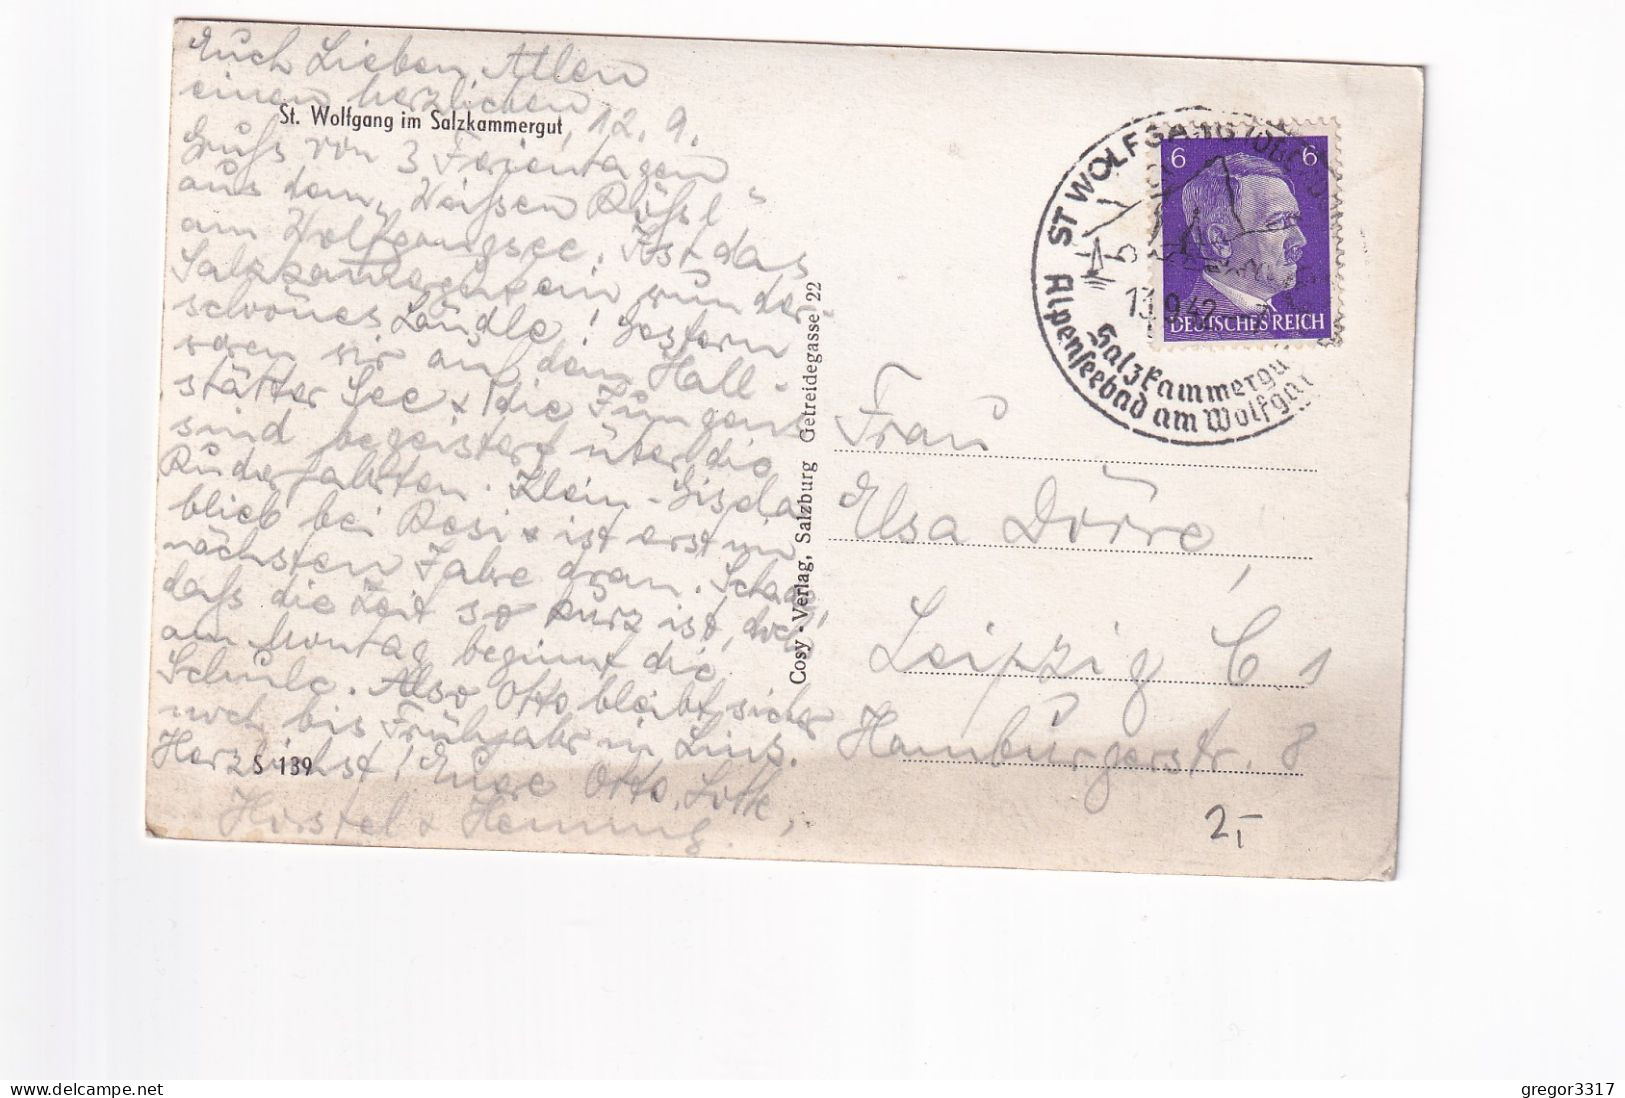 Euch Lieben Allen
einen herzlichen
St. Wolfgang im Salzkammergut
12. 9.
Gruß von 3 Ferientagen
aus dem „Weißen Rößl“
am Wolfgangsee. Ist das
Salzkammergut ein wunder-
schönes Ländle! Gestern
waren wir auf dem Hall-
stätter See & die Jungens
sind begeistert über die
Ruderfahrten. Klein-Gisela
blieb bei Resi & ist erst im
nächsten Jahre dran. Schade,
daß die Zeit so kurz ist, doch
am Montag beginnt die
Schule. Also Otto bleibt sicher
noch bis Frühjahr in Linz.
Herzlichst! Eure Otto, Lotte,
S 139
Horstel & Henning.
Cosy-Verlag, Salzburg Getreidegasse 22
ST WOLFGANG
13.9.42
Alpenseebad am Wolfga
Salzkammergu
6 6
DEUTSCHES REICH
Frau
Elsa Dörre,
Leipzig C 1
Hamburgerstr. 8
2,-
delcampe.net
gregor3317